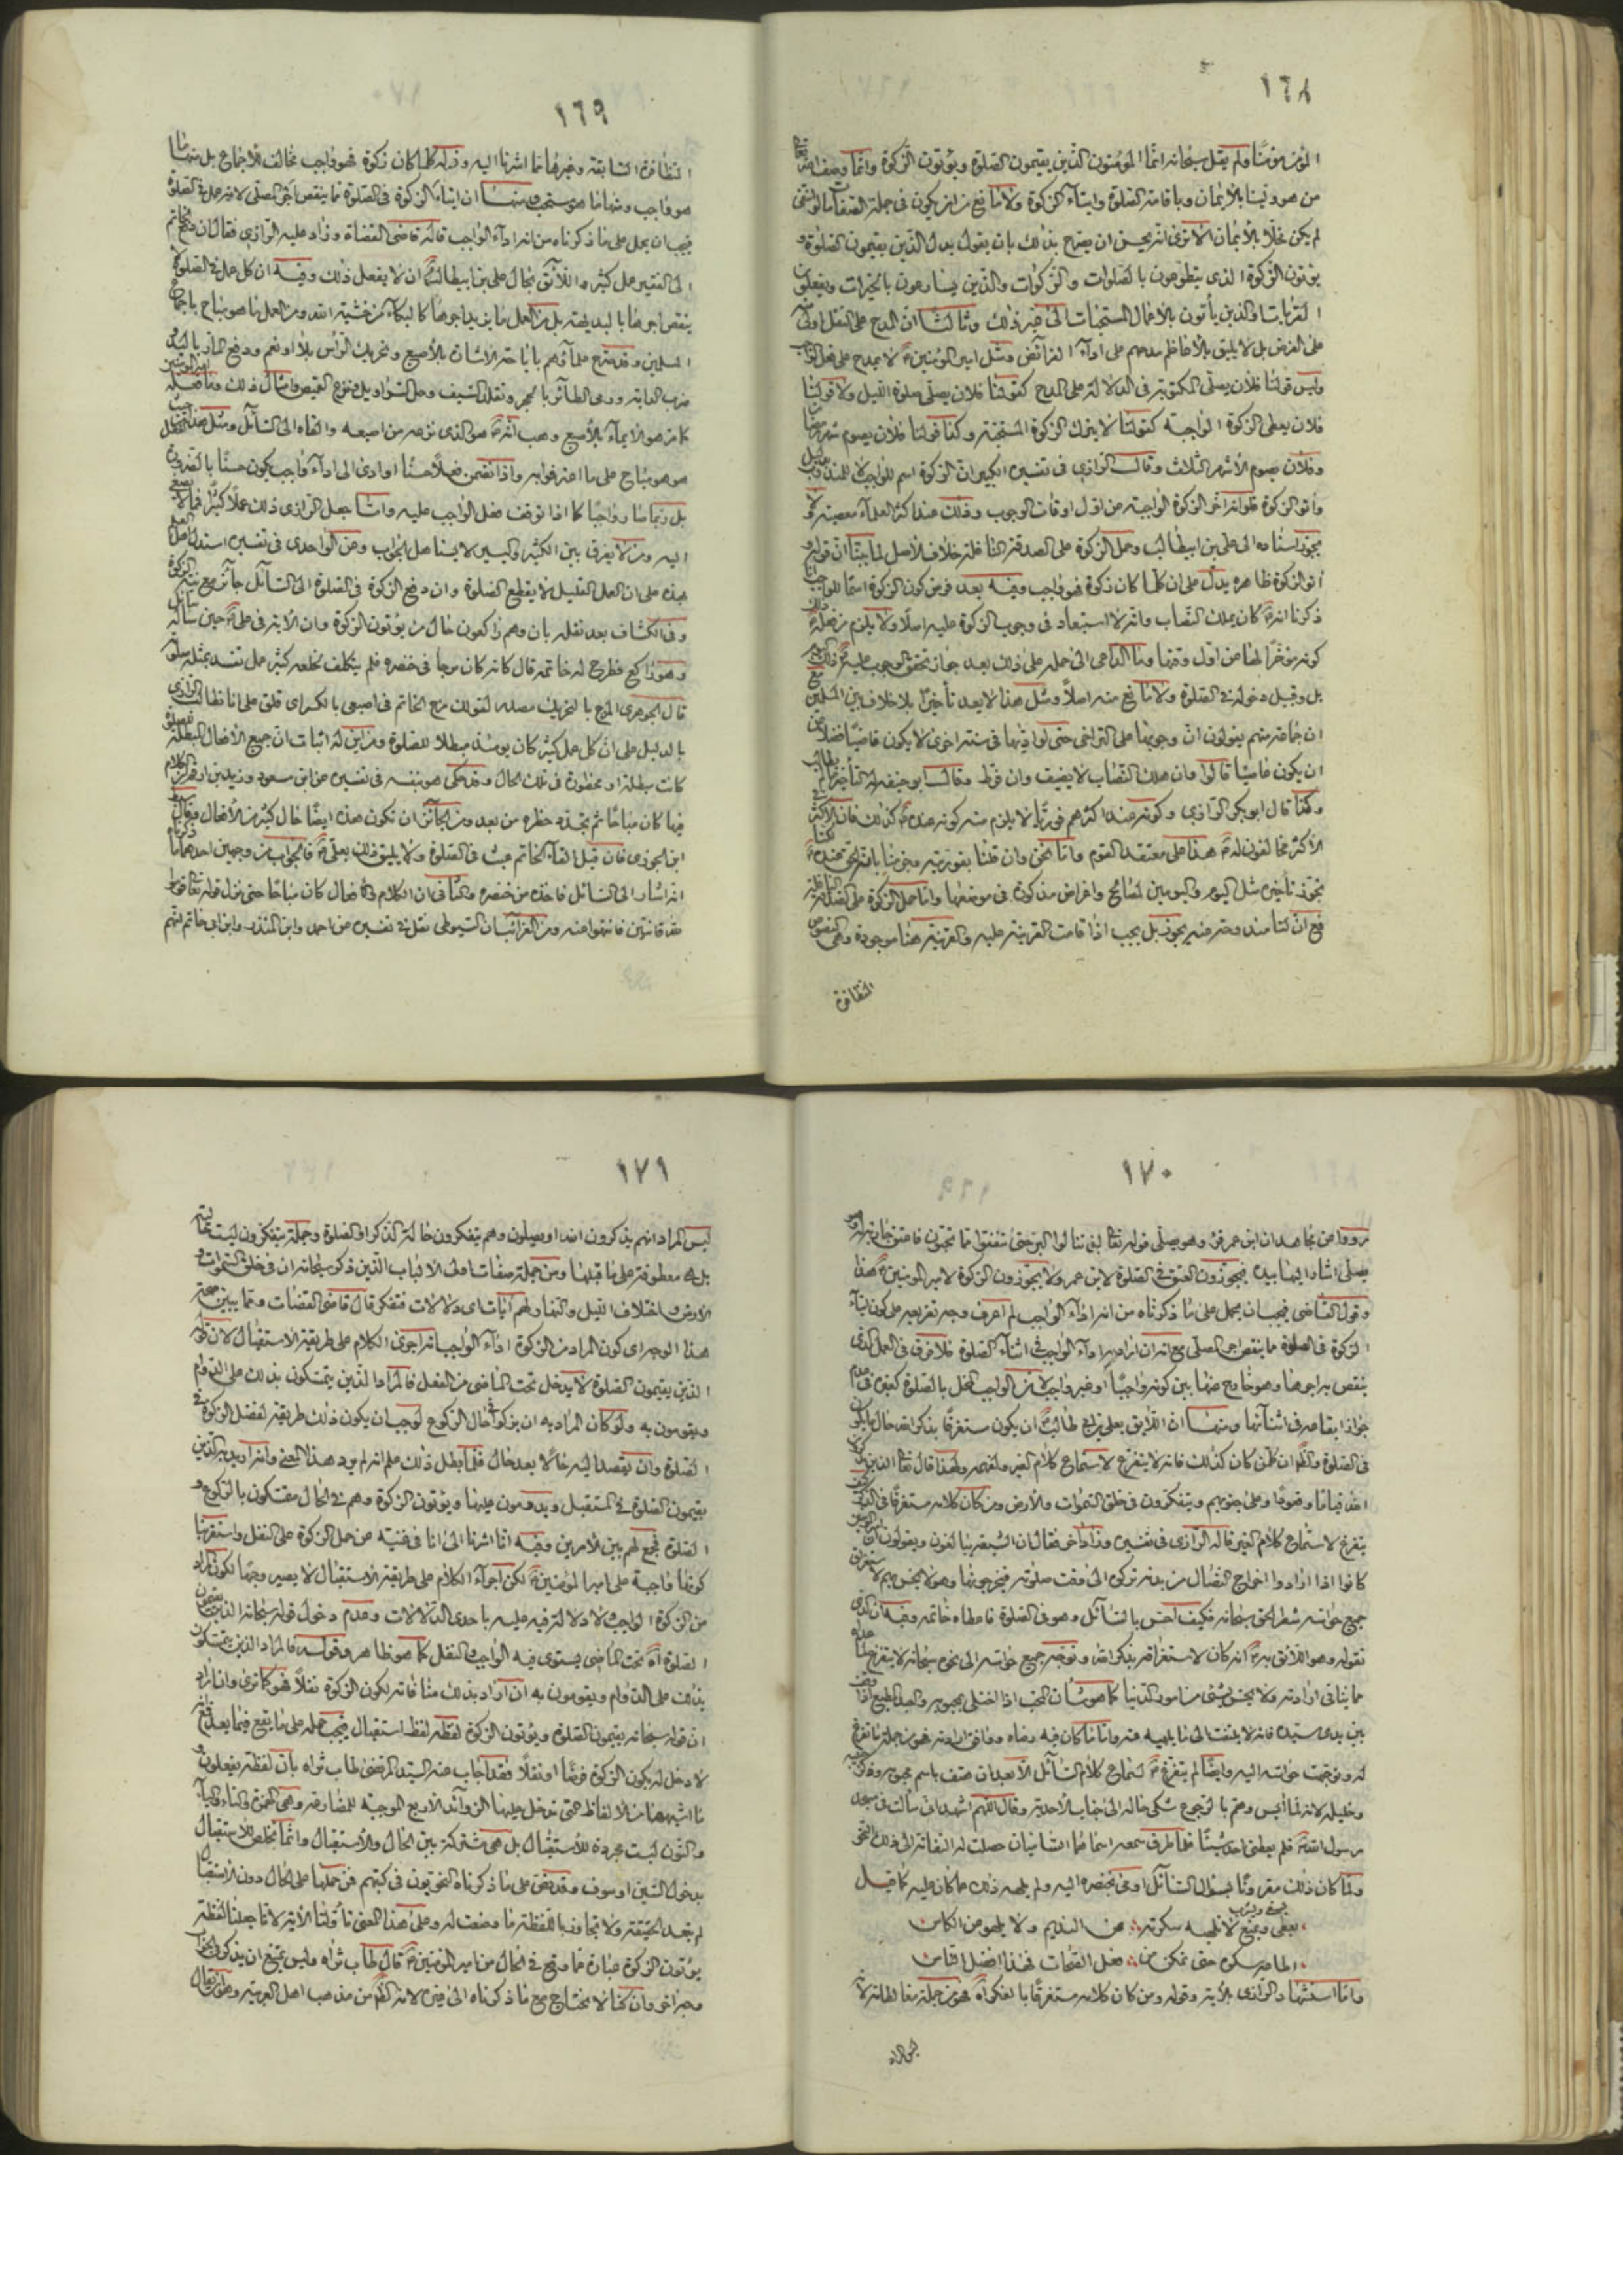 ١٦٨
المؤمن مؤمنًا ولم يقل سبحانه انما المؤمنون الذين يقيمون الصلوة ويؤتون الزكوة وانما وصف الله تعالى
من هو ولينا بالايمان وباقامة الصلوة وايتاء الزكوة ولا مانع من ان يكون في جملة الصفات ما لو انتفى
لم يكن مخلّا بالايمان الا ترى انه يحسن ان يمدح بذلك بان يقول بدل الذين يقيمون الصلوة و
يؤتون الزكوة الذي يتطوعون بالصلوات والزكوات والذين يسارعون بالخيرات ويفعلون
القربات والذين يأتون بالاعمال المستحبات الى غير ذلك وثالثا ان المدح على النفل اولى منه
على الفرض بل لا يليق بالاعاظم مدحهم على اداء الفرائض ومثل امير المؤمنين لا يمدح على فعل الواجب
وليس قولنا فلان يصلي المكتوبة في الدلالة على المدح كقولنا فلان يصلي صلوة الليل ولا قولنا
فلان يعطي الزكوة الواجبة كقولنا لا يترك الزكوة المستحبة وكذا قولنا فلان يصوم شهر رمضان
وفلان يصوم الاشهر الثلاث وقال الرازي في تفسيره الكبير ان الزكوة اسم للواجب لا للمندوب بدليل
وآتوا الزكوة فلو انه اخر الزكوة الواجبة عن اول اوقات الوجوب وذلك عند اكثر العلماء معصية ولا
يجوز اسناده الى علي بن ابيطالب وحمل الزكوة على الصدقة النافلة خلاف الاصل لما بينا ان قوله و
آتوا الزكوة ظاهره يدل على ان كلما كان زكوة فهو واجب وفيه بعد فرض كون الزكوة اسما للواجب انا
ذكرنا انه كان يملك النصاب وانه لا استبعاد في وجوب الزكوة عليه اصلًا ولا يلزم من فعله ذلك
كونه مؤخرًا لها من اول وقتها وما الداعي الى حمله على ذلك بعد جواز تحقق الوجوب عليه في ذلك اليوم
بل وقبيل دخوله في الصلوة ولا مانع منه اصلًا ومثل هذا لا يعد تأخيرًا بلا خلاف بين المسلمين مع
ان جماعة منهم يقولون ان وجوبها على التراخي حتى لو اداها في سنة اخرى لا يكون قاضيًا فضلًا عن
ان يكون عاصيًا قالوا وان هلك النصاب لا يضيف وان فرط وقال ابو حنيفه له التأخير ما لم يطالب
وكذا قال ابو بكر الرازي وكونه عند اكثرهم فوريًا لا يلزم منه كونه عنده كذلك فان الاكثر في
الاكثر مخالفون له هذا على معتقد القوم واما نحن وان قلنا بفوريته وجزمنا بانه الحق عنده لكنا
نجوز تأخيره مثل اليوم واليومين لمصالح واغراض مذكورة في موضعها واما حمل الزكوة على الصدقة النافلة
فمع ان لنا مندوحة منه يجوز بل يجب اذا قامت القرينة عليه والقرينة هنا موجودة وهي النصوص
المتظافرة
١٦٩
المتظافرة السابقة وغيرها مما اشرنا اليه وقوله كلما كان زكوة فهو واجب مخالف للاجماع بل منها ما
هو واجب ومنها ما هو مستحب ومنها ان ايتاء الزكوة في الصلوة مما ينقص اجر المصلي لانه عمل في الصلوة
فيجب ان يحمل على ما ذكرناه من انه اداء الواجب قاله قاضي القضاة وزاد عليه الرازي فقال ان دفع الخاتم
الى الفقير عمل كثير واللائق بحال علي بن ابيطالب ان لا يفعل ذلك وفيه ان كل عمل في الصلوة
ينقص اجرها بالبديهة بل من العمل ما يزيد اجرها كالبكاء من خشية الله ومن العمل ما هو مباح باجماع
المسلمين وقد صرح علماؤهم باباحة الاشارة بالاصبع وتحريك الراس بلا او نعم ودفع المار باليد و
ضرب الدابة ورمي الطائر بالحجر وتقلد السيف وحل السراويل ونزع القميص وامثال ذلك وما فعله امير المؤمنين
كان هو الايماء بالاصبع وهب انه هو الذي نزعه من اصبعه والقاه الى السائل ومثل هذا العمل حيث
هو هو مباح على ما اعترفوا به واذا تضمن فعلًا حسنًا او ادى الى اداء واجب يكون حسنًا بالضرورة
بل وربما صار واجبًا كما اذا توقف فعل الواجب عليه واما جعل الرازي ذلك عملًا كثيرًا فما لا يصغى
اليه ومن لا يفرق بين الكثير واليسير لا يستاهل الجواب وعن الواحدي في تفسيره استدل اهل العلم
بهذه على ان العمل القليل لا يقطع الصلوة وان دفع الزكوة في الصلوة الى السائل جائز مع نية الزكوة
وفي الكشاف بعد نقله بان وهم راكعون حال من يؤتون الزكوة وان الآية في علي حين سأله سائل
وهو راكع فطرح له خاتمه قال كانه كان مرجا في خنصره فلم يتكلف لخلعه كثير عمل تفسد بمثله صلوته
قال الجوهري المرج بالتحريك مصدر قولك مرج الخاتم في اصبعي بالكسر اي قلق على انا نطالب الرازي
بالدليل على ان كل عمل كثير كان يومئذ مبطلا للصلوة ومن اين له اثبات ان جميع الافعال المبطلة للصلوة
كانت مبطلة او محظورة في تلك الحال وقد حكى هو بنفسه في تفسيره عن ابن مسعود وزيد بن ارقم ان الكلام
فيها كان مباحًا ثم تجدد حظره من بعد ومن الجائز ان تكون هذه ايضًا حال كثير من الافعال فيقال
ابن الجوزي فان قيل القاء الخاتم عبث في الصلوة ولا يليق ذلك بعلي فالجواب من وجهين احدهما ما ذكرناه
انه اشار الى السائل فاخذه من خنصره والثاني ان الكلام والافعال كان مباحًا حتى نزل قوله تعالى وقوموا
لله قانتين فانتهوا عنه ومن الغرائب ان السيوطي نقل في تفسيره عن احمد وابن المنذر وابن ابي حاتم انهم
١٧٠
رووا عن مجاهد ان ابن عمر قرء وهو يصلي قوله تعالى لن تنالوا البر حتى تنفقوا مما تحبون فاعتق جارية له وهو
يصلي اشار اليها بيده فيجوزون العتق في الصلوة لابن عمر ولا يجوزون الزكوة لامير المؤمنين هذا
وقول القاضي فيجب ان يحمل على ما ذكرناه من انه اداء الواجب لم اعرف وجه تفريعه على كون ايتاء
الزكوة في الصلوة مما ينقص اجر المصلي مع انه ان اراد به اداء الواجب في اثناء الصلوة فلا فرق في العمل الذي
ينقص به اجرها وهو خارج عنها بين كونه واجبًا او غير واجب لان الواجب المخل بالصلوة كغيره في عدم
جواز ايقاعه في اثنائها ومنها ان اللائق بعلي بن ابي طالب ان يكون مستغرقًا بذكر الله حال ما يكون
في الصلوة والظاهر ان من كان كذلك فانه لا يتفرغ لاستماع كلام الغير ولفهمه ولهذا قال تعالى الذين يذكرون
الله قياما وقعودًا وعلى جنوبهم ويتفكرون في خلق السموات والارض ومن كان كلامه مستغرقًا في الفكر كيف
يتفرغ لاستماع كلام الغير قاله الرازي في تفسيره وزاد آخر فقال ان الشيعة يبالغون ويقولون ان امير المؤمنين
كانوا اذا ارادوا اخراج النصال من بدنه تركوه الى وقت صلوته فيخرجونها وهو لا يحس بهم لاستغراق
جميع حواسه شطر الحق سبحانه فكيف احس بالسائل وهو في الصلوة فاعطاه خاتمه وفيه ان الذي
نقوله وهو اللائق به انه كان لاستغراقه بذكر الله وتوجه جميع حواسه الى نحوه سبحانه لا يتفرغ لما عداه
مما ينافي ارادته ولا يحس بشيء من امور الدنيا كما هو شان المحب اذا اختلى بمحبوبه والعبد المطيع اذا وقف
بين يدي سيده فانه لا يلتفت الى ما يلهيه عنه واما ما كان فيه رضاه ووافق ارادته فهو من جملة ما تفرغ
له وتوجهت حواسه اليه وايضًا لم يتفرغ لسماع كلام السائل الا بعد ان هتف باسم محبوبه وذكر حبيبه
وخليله لانه لما ايس وهم بالرجوع شكى حاله الى جناب الاحدية وقال اللهم اشهد اني سالت في مسجد
رسول الله فلم يعطني احد شيئًا فلما طرق سمعه اسماهما الشانيان حصلت له التفاتة الى ذلك النحو
ولما كان ذلك مقرونًا بسؤال السائل اومى بخنصره اليه ولم يلهه ذلك عما كان عليه كما قيل
يسقي ويشرب
يعطي ويمنع لا تلهيه سكرته عن النديم ولا يلهو عن الكاس
اطاعه سكره حتى تمكن من فعل الصحاة فهذا افضل الناس
واما استشهاد الرازي بالآية وقوله ومن كان كلامه مستغرقًا بالفكر آه فهو من جملة مغالطاته لانه
ليس المراد
١٧١
ليس المراد انهم يذكرون الله او يصلون وهم يتفكرون حالة الذكر او الصلوة وجملة يتفكرون ليست حالية
بل هي معطوفة على ما قبلها ومن جملة صفات اولى الالباب الذين ذكر سبحانه ان في خلق السموات و
الارض واختلاف الليل والنهار لهم آيات اي دلالات فتفكر قال قاضي القضات ومما يبين صحة
هذا الوجه اي كون المراد من الزكوة اداء الواجب انه اجرى الكلام على طريقة الاستقبال لان قوله
الذين يقيمون الصلوة لا يدخل تحت الماضي من الفعل فالمراد الذين يتمسكون بذلك على الدوام
ويقومون به ولو كان المراد به ان يزكوا في حال الركوع لوجب ان يكون ذلك طريقة لفضل الزكوة في
الصلوة وان يقصد اليه حالًا بعد حال فلما بطل ذلك علم انه لم يرد هذا المعنى وانه اراد به الذين
يقيمون الصلوة في المستقبل ويدومون عليها ويؤتون الزكوة وهم في الحال متمسكون بالركوع و
الصلوة فجمع لهم بين الامرين وفيه انا اشرنا الى انا في غنية عن حمل الزكوة على النفل واستقربنا
كونها واجبة على امير المؤمنين لكن اجراء الكلام على طريقة الاستقبال لا يصير وجهًا لكون المراد
من الزكوة الواجب لا دلالة فيه عليه باحدى الدلالات وعدم دخول قوله سبحانه الذين يقيمون
الصلوة آه تحت الماضي يستوي فيه الواجب والنفل كما هو ظاهر وقوله فالمراد الذين يتمسكون
بذلك على الدوام ويقومون به ان اراد بذلك منافاته لكون الزكوة نفلًا فهو كما ترى وان اراد
ان قوله سبحانه يقيمون الصلوة ويؤتون الزكوة لفظه لفظ استقبال فيجب حمله على ما يقع فيما بعد فمع انه
لا دخل له بكون الزكوة فرضًا او نفلًا فقد اجاب عنه السيد المرتضى طاب ثراه بان لفظة يفعلون و
ما اشبهها من الالفاظ التي تدخل عليها الزوائد الاربع الموجبة للمضارعة وهي الهمزة والتاء والياء
والنون ليست مجردة للاستقبال بل هي مشتركة بين الحال والاستقبال وانما تخلص للاستقبال
بدخول السين او سوف وقد نص على ما ذكرناه النحويون في كتبهم فمن حملها على الحال دون الاستقبال
لم يتعد الحقيقة ولا تجاوز باللفظة ما وضعت له وعلى هذا المعنى تأولنا الآية لانا جعلنا لفظة
يؤتون الزكوة عبارة عما وقع في الحال من امير المؤمنين قال طاب ثراه وليس يمتنع ان يذكر في الجواب
وجه آخر وان كنا لا نحتاج مع ما ذكرناه الى غيره لانه الظاهر من مذهب اهل العربية وهو ان يقال